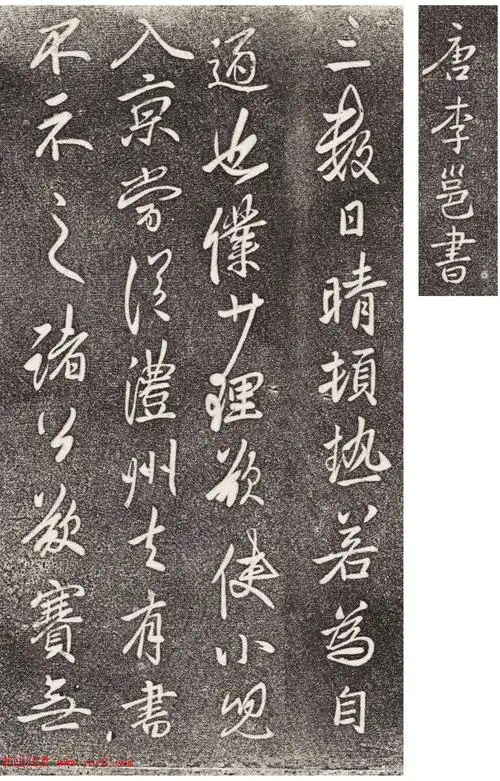 唐李邕書
三數日晴頓热若為自
適也僕少理欲使小兒
入京當從澧州去有書
不示之諸公欲賽無